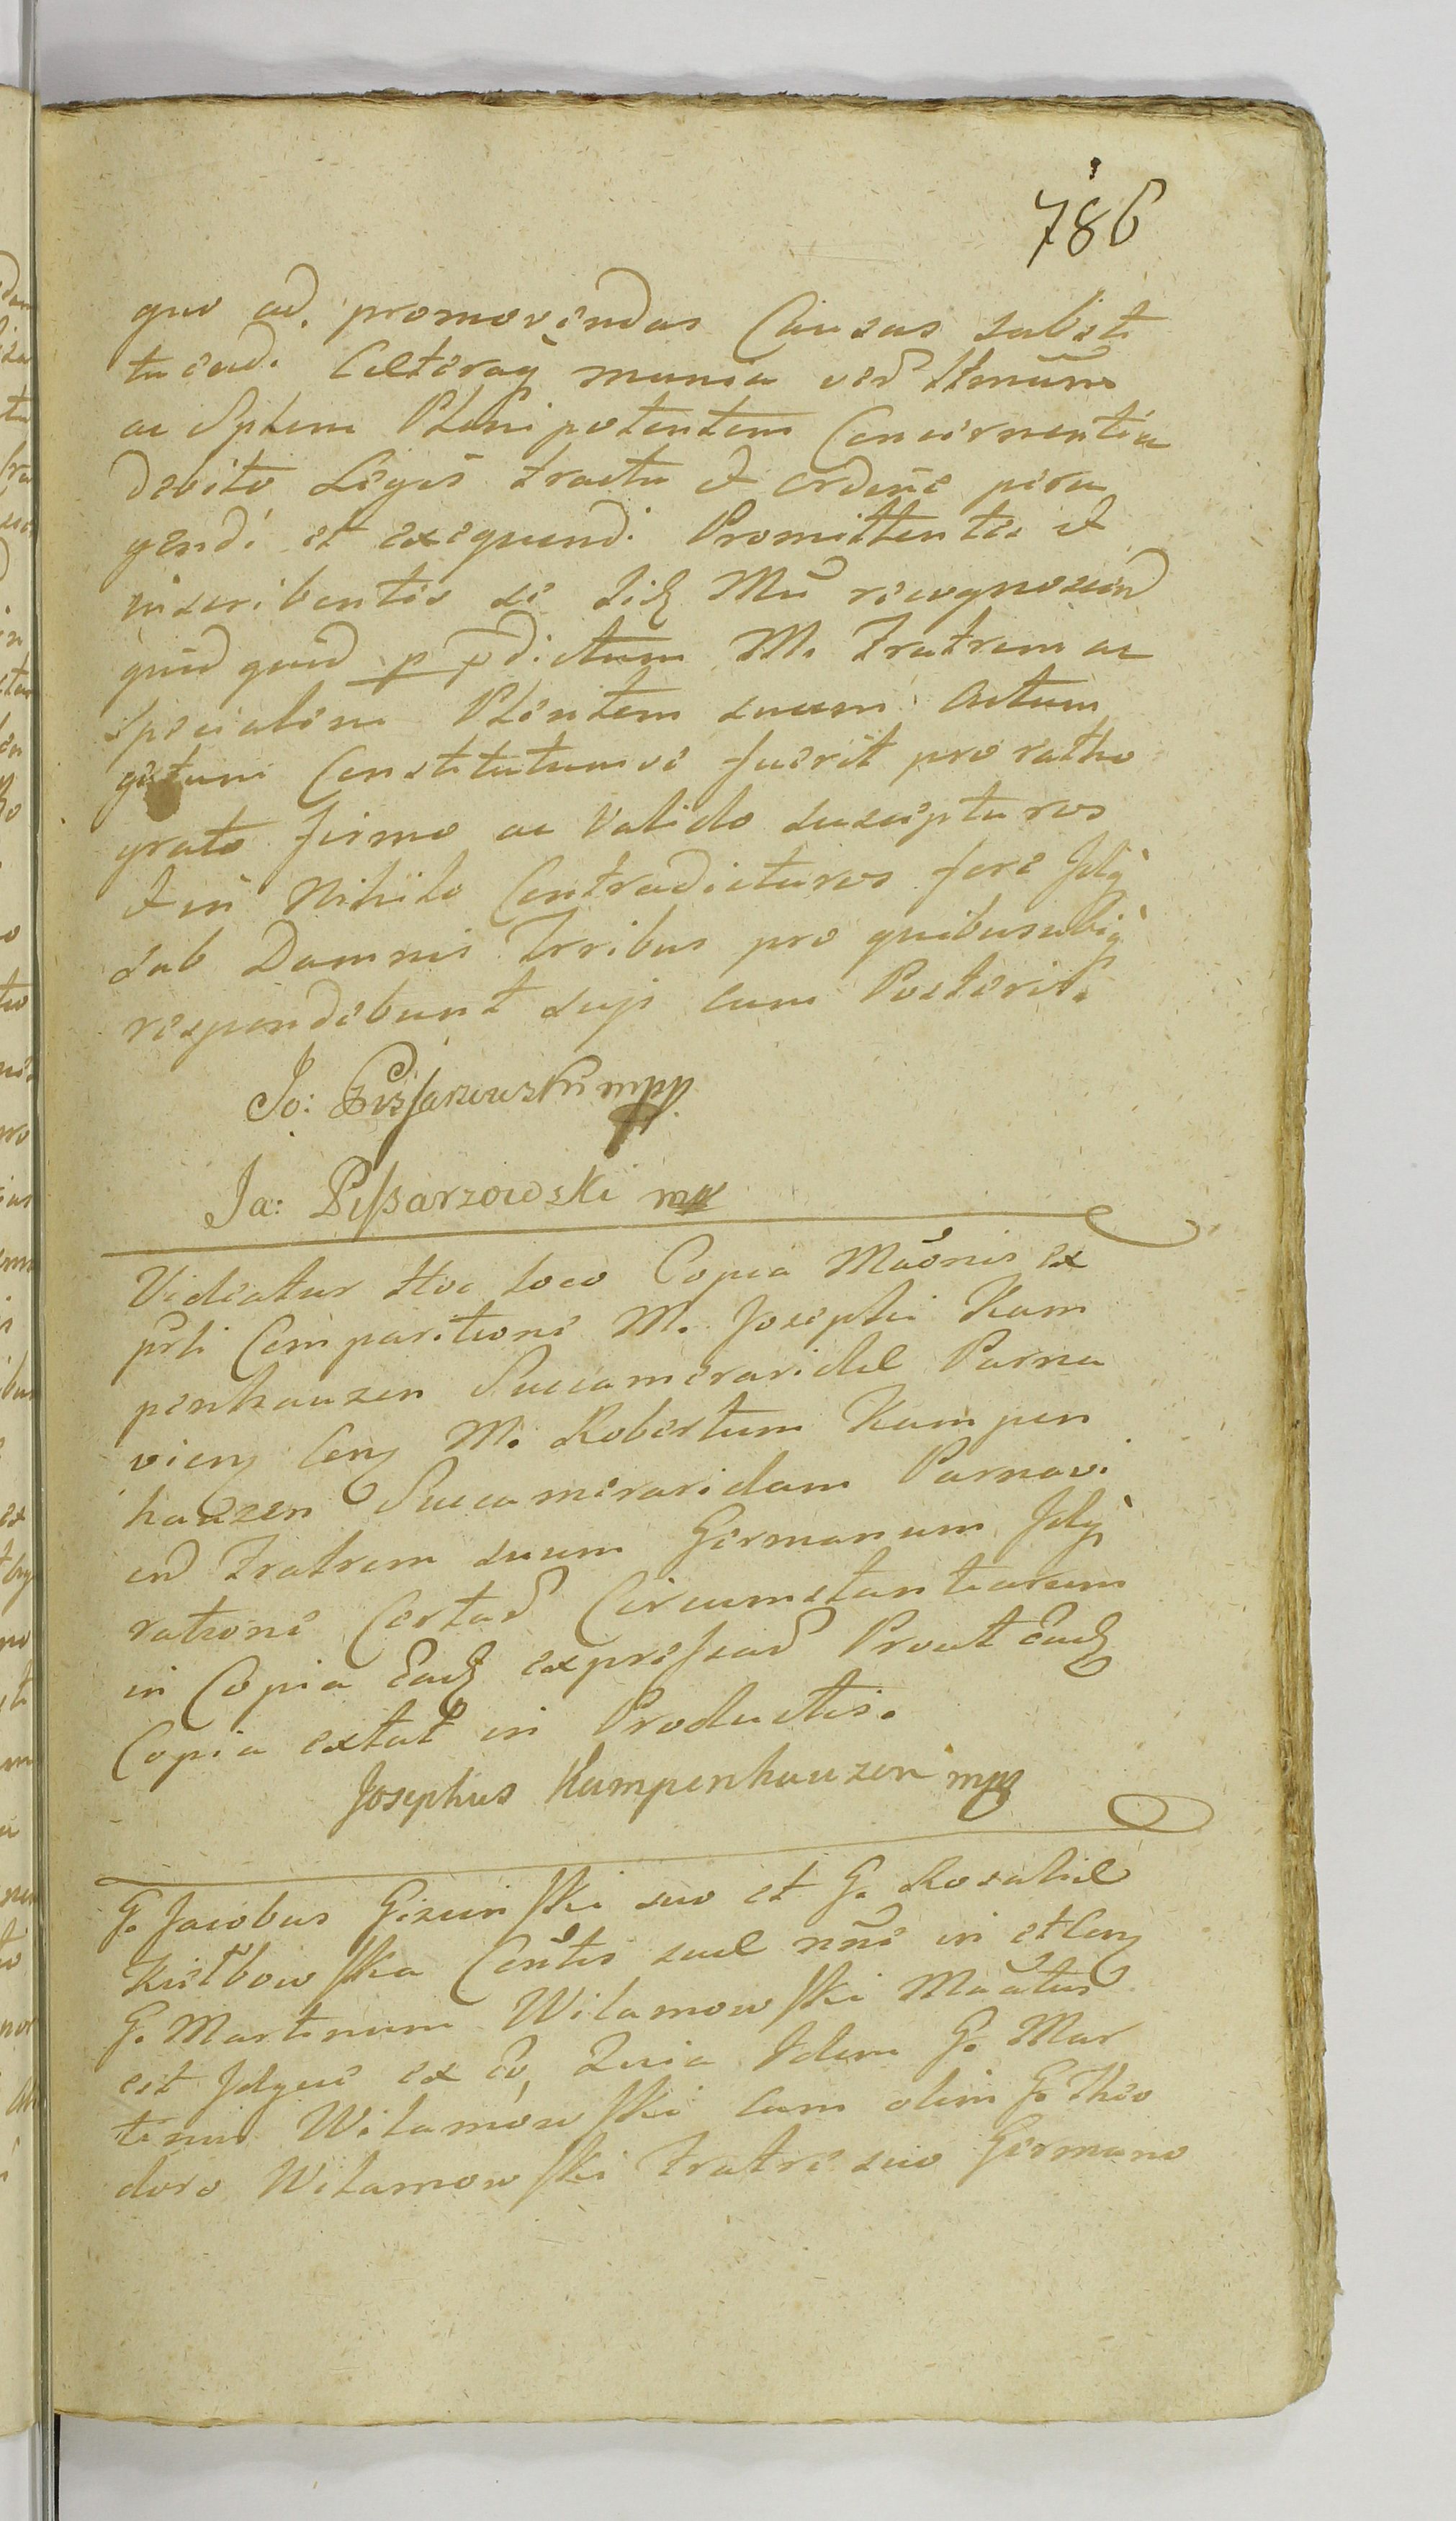 786
quo ad promovendas Causas substi
tuendi Cæteraq munia ved Hmũm
ac Splem Plenipotentem Concernentia
debito Legis tractu et ordine pera
gendi et exequendi Promittentes et
inscribentes se Iidz Mũ recognoscend
quid quid p pdictum M. Fratrem ac
specialem Plentem suum Actum
gestum Constitutumve fuerit pro ratho
grato firmo ac Valido suscepturos
et in Nihilo Contradicturos fore Idq
sub Damnis Trribus pro quibus ubiq
respondebunt suji cum Posterit.
Jo: Piszarzowski mpp.
Ja: Pißarzowski mp
Videatur Hoc loco Copia Mãonis ex
prli Comparitione M. Josephi Kam
penhauzen Succameraridæ Parna
vien Con M. Robertum Kampen
hauzen Succameraridam Parnavi
en Fratrem suum Germanum Idq
ratione Certad Circumstantiarum
in Copia Eadz expressad Prout Eadz
Copia extat in Productis.
Josephus Kampenhauzen mpp
G. Jacobus Gizuinski suo et G. Rosaliæ
Kiełbowska Contis suæ nñe in et Con
G. Martinum Wilamowski Mãatus
est Idque ex eo, Quia Idem G. Mar
tinus Wilamowski cum olim G. Theo
doro Wilamowski Fratre suo Germano